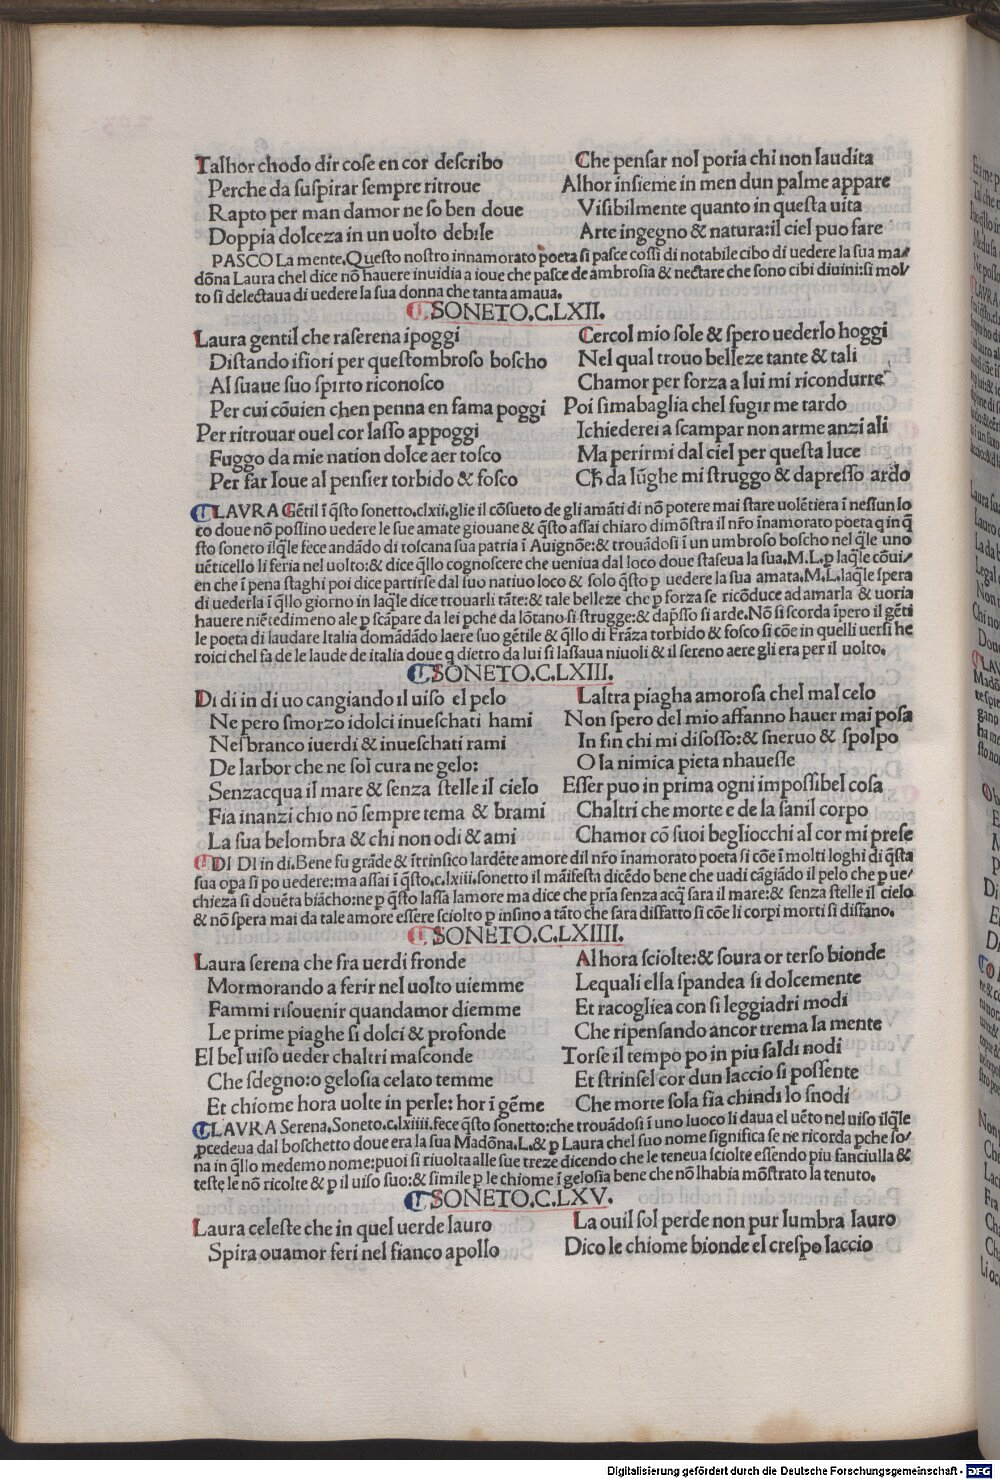 Talhor chodo dir cose en cor describo
Perche da suspirar sempre ritroue
Rapto per man damor ne so ben doue
Doppia dolceza in un uolto debile
Che pensar nol poria chi non laudita
Alhor insieme in men dun palme appare
Visibilmente quanto in questa uita
Arte ingegno & natura:il ciel puo fare
PASCO La mente.Questo nostro innamorato poeta si pasce cossi di notabile cibo di uedere la sua ma/
dõna Laura chel dice nõ hauere inuidia a ioue che pasce de ambrosia & nectare che sono cibi diuini:si mol/
to si delectaua di uedere la sua donna che tanta amaua.
SONETO.C.LXII.
Laura gentil che raserena ipoggi
Distando ifiori per questombroso boscho
Al suaue suo spirto riconosco
Per cui cõuien chen penna en fama poggi
Per ritrouar ouel cor lasso appoggi
Fuggo da mie nation dolce aer tosco
Per far loue al pensier torbido & fosco
Cercol mio sole & spero uederlo hoggi
Nel qual trouo belleze tante & tali
Chamor per forza a lui mi ricondurre
Poi simabaglia chel fugir me tardo
Ichiederei a scampar non arme anzi ali
Ma perirmi dal ciel per questa luce
Cħ da lũghe mi struggo & dapresso ardo
LAVRA Gẽtil ĩ q̃sto sonetto.clxii.glie il cõsueto de gli amãti di nõ potere mai stare uolẽtiera ĩ nessun lo
co doue nõ possino uedere le sue amate giouane & q̃sto assai chiaro dimõstra il nr̃o ĩnamorato poeta q in q̃
sto soneto ilq̃le fece andãdo di toscana sua patria ĩ Auignõe:& trouãdosi ĩ un umbroso boscho nel q̃le uno
uẽticello li feria nel uolto:& dice q̃llo cognoscere che ueniua dal loco doue staseua la sua.M.L.p laq̃le cõui/
en che ĩ pena staghi poi dice partirse dal suo natiuo loco & solo q̃sto p uedere la sua amata.M.L.laq̃le spera
di uederla ĩ q̃llo giorno in laq̃le dice trouarli tãte:& tale belleze che p forza se ricõduce ad amarla & uoria
hauere niẽtedimeno ale p scãpare da lei pche da lõtano si strugge:& dap̃sso si arde.Nõ si scorda ĩpero il gẽti
le poeta di laudare Italia domãdãdo laere suo gẽtile & q̃llo di Frãza torbido & fosco si cõe in quelli uersi he
roici chel fa de le laude de italia doue q dietro da lui si lassaua niuoli & il sereno aere gli era per il uolto.
SONETO.C.LXIII.
Di di in di uo cangiando il uiso el pelo
Ne pero smorzo idolci inueschati hami
Nesbranco iuerdi & inueschati rami
De larbor che ne sol cura ne gelo:
Senzacqua il mare & senza stelle il cielo
Fia inanzi chio nõ sempre tema & brami
La sua belombra & chi non odi & ami
Lastra piagha amorosa chel mal celo
Non spero del mio affanno hauer mai posa
In fin chi mi disosso:& sneruo & spolpo
O la nimica pieta nhauesse
Esser puo in prima ogni impossibel cosa
Chaltri che morte e de la sanil corpo
Chamor cõ suoi begliocchi al cor mi prese
DI DI in di.Bene fu grãde & ĩtrinsico lardẽte amore dil nr̃o ĩnamorato poeta si cõe ĩ molti loghi di q̃sta
sua opa si po uedere:ma assai ĩ q̃sto.c.lxiii.sonetto il mãifesta dicẽdo bene che uadi cãgiãdo il pelo che p ue/
chieza si douẽta biãcho:ne p q̃sto lassa lamore ma dice che pria senza acq̃ sara il mare:& senza stelle il cielo
& nõ spera mai da tale amore essere sciolto p insino a tãto che sara disfatto si cõe li corpi morti si disfano.
SONETO.C.LXIIII.
Laura serena che fra uerdi fronde
Mormorando a ferir nel uolto uiemme
Fammi risouenir quandamor diemme
Le prime piaghe si dolci & profonde
El bel uiso ueder chaltri masconde
Che sdegno:o gelosia celato temme
Et chiome hora uolte in perle: hor ĩ gẽme
Alhora sciolte:& soura or terso bionde
Lequali ella spandea si dolcemente
Et racogliea con si leggiadri modi
Che ripensando ancor trema la mente
Torse il tempo po in piu saldi nodi
Et strinsel cor dun laccio si possente
Che morte sola fia chindi lo snodi
LAVRA Serena.Soneto.c.lxiiii.fece q̃sto sonetto:che trouãdosi ĩ uno luoco li daua el uẽto nel uiso ilq̃le
pcedeua dal boschetto doue era la sua Madõna.L.& p Laura chel suo nome significa se ne ricorda pche so/
na in q̃llo medemo nome:puoi si riuolta alle sue treze dicendo che le teneua sciolte essendo piu fanciulla &
teste le nõ ricolte & p il uiso suo:& simile p le chiome ĩ gelosia bene che nõ lhabia mõstrato la tenuto.
SONETO.C.LXV.
Laura celeste che in quel uerde lauro
Spira ouamor feri nel fianco apollo
La ouil sol perde non pur lumbra lauro
Dico le chiome bionde el crespo laccio
Digitalisierung gefördert durch die Deutsche Forschungsgemeinschaft - DFG